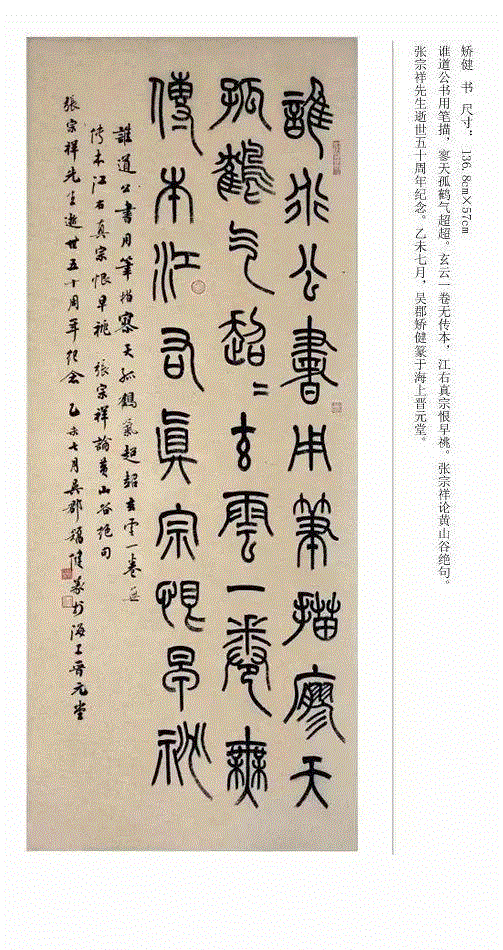 矫健 书 尺寸： 136.8cm×57cm
谁道公书用笔描，寥天孤鹤气超超。玄云一卷无传本，江右真宗恨早桃。张宗祥论黄山谷绝句。
张宗祥先生逝世五十周年纪念。乙未七月，吴郡矫健篆于海上晋元堂。
誰道公書用筆描寥天
孤鶴气超〻玄雲一卷無
傳本江右真宗恨早祧
誰道公書用筆描寥天孤鶴氣超超玄雲一卷無
傳本江右真宗恨早祧 張宗祥論黃山谷絕句
張宗祥先生逝世五十周年紀念 乙未七月吳郡矯健篆於海上晉元堂